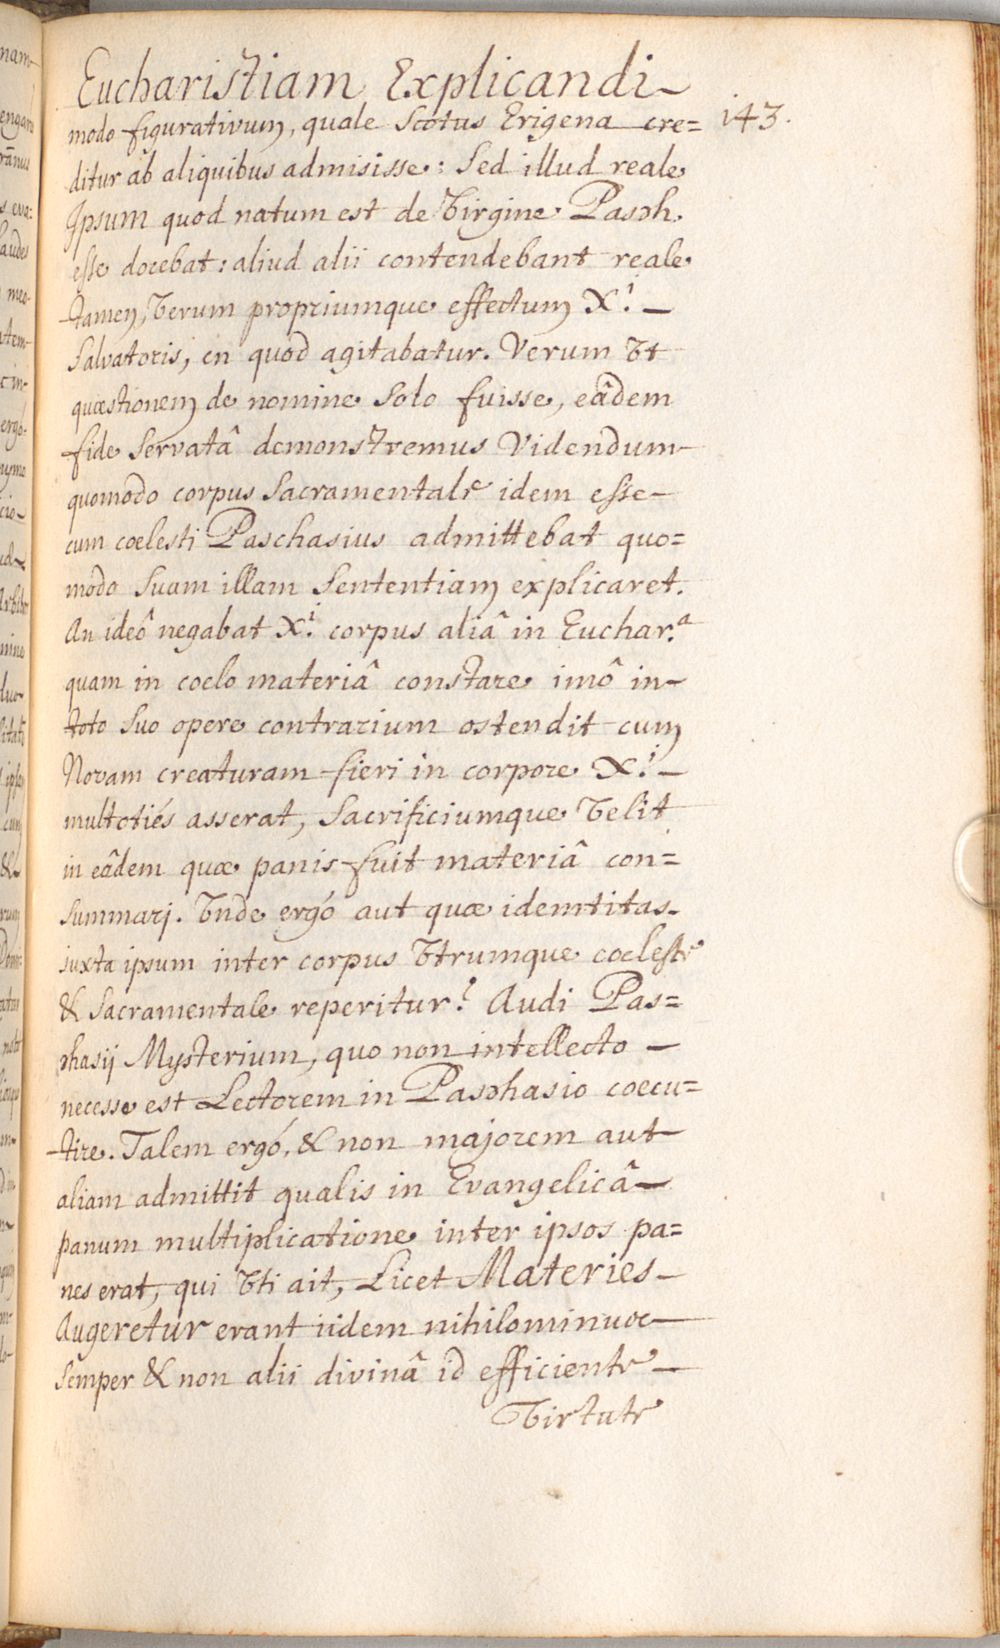 Eucharistiam Explicandi
143.
modo figurativum, quale Scotus Erigena cre=
ditur ab aliquibus admisisse: Sed illud reale
Ipsum quod natum est de Virgine Pasch.
esse docebat: aliud alii contendebant reale
tamen, Verum propriumque effectum Xi. —
Salvatoris, en quod agitabatur. Verum Vt
quæstionem de nomine solo fuisse, eâdem
fide Servatâ demonstremus Videndum
quomodo corpus Sacramentale idem esse
cum coelesti Paschasius admittebat quo=
modo Suam illam Sententiam explicaret.
An ideô negabat Xi. corpus aliâ in Euchar.a
quam in coelo materiâ constare imô in
toto Suo opere contrarium ostendit cum
Novam creaturam fieri in corpore Xi. —
multotiés asserat, Sacrificiumque Velit
in eâdem quæ panis fuit materiâ con=
summari. Vnde ergó aut quæ idemtitas
juxta ipsum inter corpus Vtrumque coeleste
& Sacramentale reperitur? Audi Pas=
chasij Mysterium, quo non intellecto —
necesse est Lectorem in Paschasio coecu=
tire. Talem ergó, & non majorem aut
aliam admittit qualis in Evangelicâ
panum multiplicatione inter ipsos pa=
nes erat, qui Vti ait, Licet Materies
Augeretur erant iidem nihilominus
Semper & non alii divinâ id efficiente —
Virtute